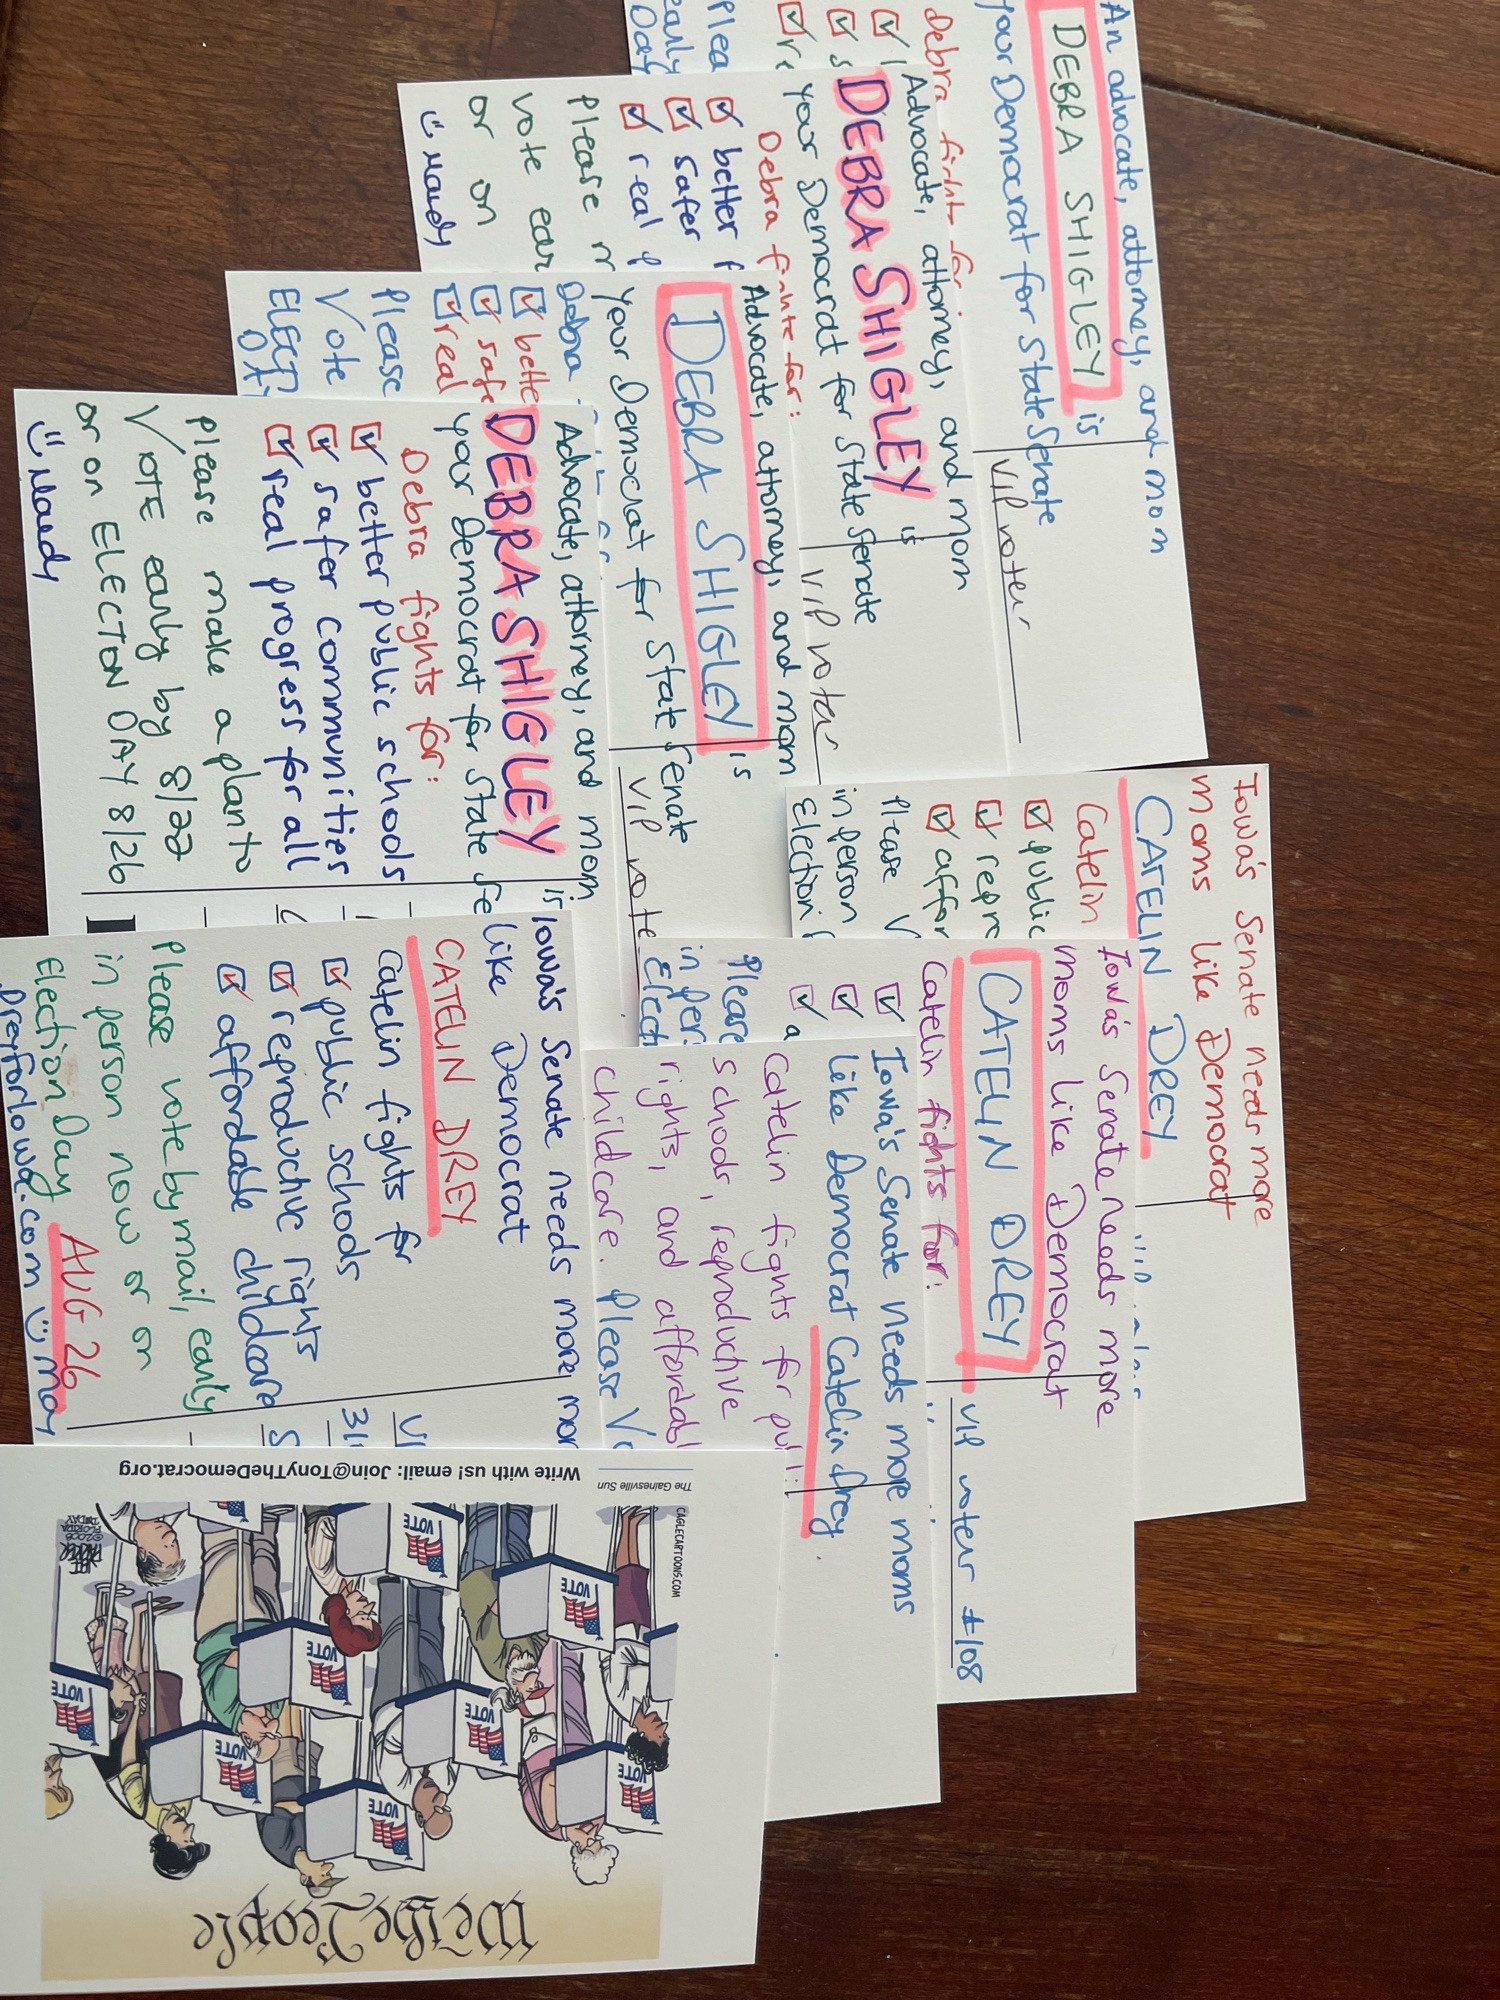 An advocate, attorney, and mom
DEBRA SHIGLEY is
your Democrat for State Senate
Debra fights for
VIP voter
Advocate, attorney, and mom
DEBRA SHIGLEY is
your Democrat for State Senate
Debra fights for:
better
safer
real
Please
vote
or on
Mandy
VIP voter
Advocate, attorney, and mom
DEBRA SHIGLEY is
your Democrat for State Senate
Debra
real
Please
Vote
VIP
Advocate, attorney, and mom
DEBRA SHIGLEY is
your Democrat for State
Debra fights for:
better public schools
safer communities
real progress for all
Please make a plan to
VOTE early by 8/22
or on ELECTION DAY 8/26
Mandy
Iowa's Senate needs more
moms like Democrat
CATELIN DREY
Catelin
public
Please
in person
Election
Iowa's Senate needs more
moms like Democrat
CATELIN DREY
Catelin fights for:
Please
VIP voter #108
Iowa's Senate needs more moms
like Democrat Catelin Drey
Catelin fights for
schools, reproductive
rights, and
childcare. Please
Iowa's Senate needs more
like Democrat
CATELIN DREY
Catelin fights for
public schools
reproductive rights
affordable childcare
Please vote by mail, early
in person now or on
Election Day AUG 26
Dreyforiowa.com
We the People
VOTE
VOTE
VOTE
VOTE
VOTE
VOTE
VOTE
VOTE
VOTE
CAGLECARTOONS.COM
©2008
FLORIDA
TODAY
The Gainesville Sun
Write with us! email: Join@TonyTheDemocrat.org